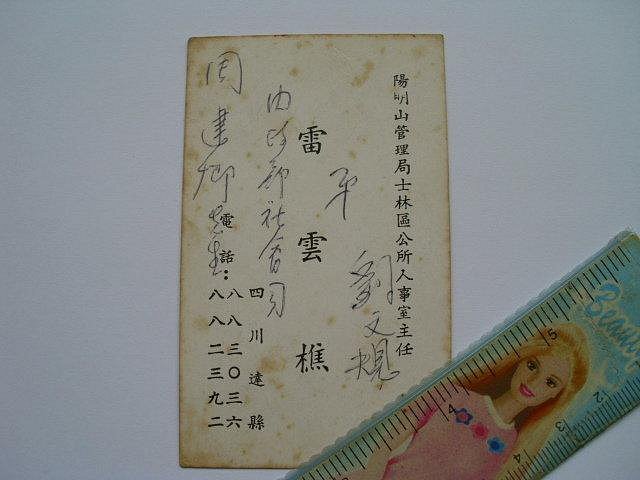 陽明山管理局士林區公所人事室主任
雷雲樵
四川達縣
電話：八八三〇三六
八八二三九二
劉文規
平
內政部社會司
周建卿先生
Beauty
5
4
12
13
4